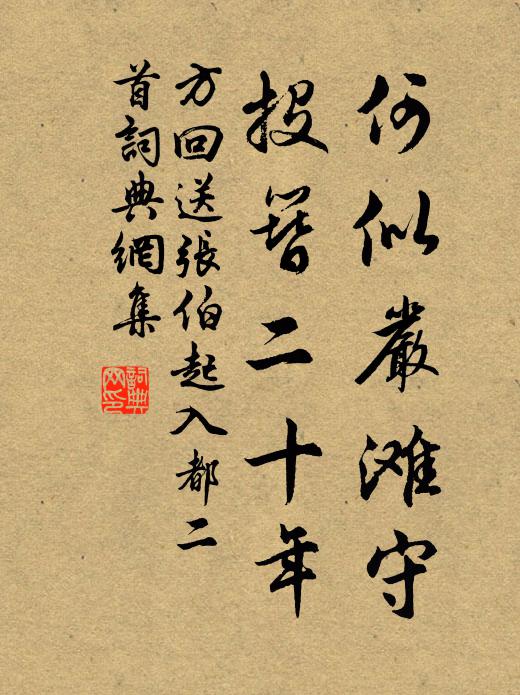 何似嚴滩守
投簪二十年
方回送張伯起入都二
首詞典網集
詞典
网印